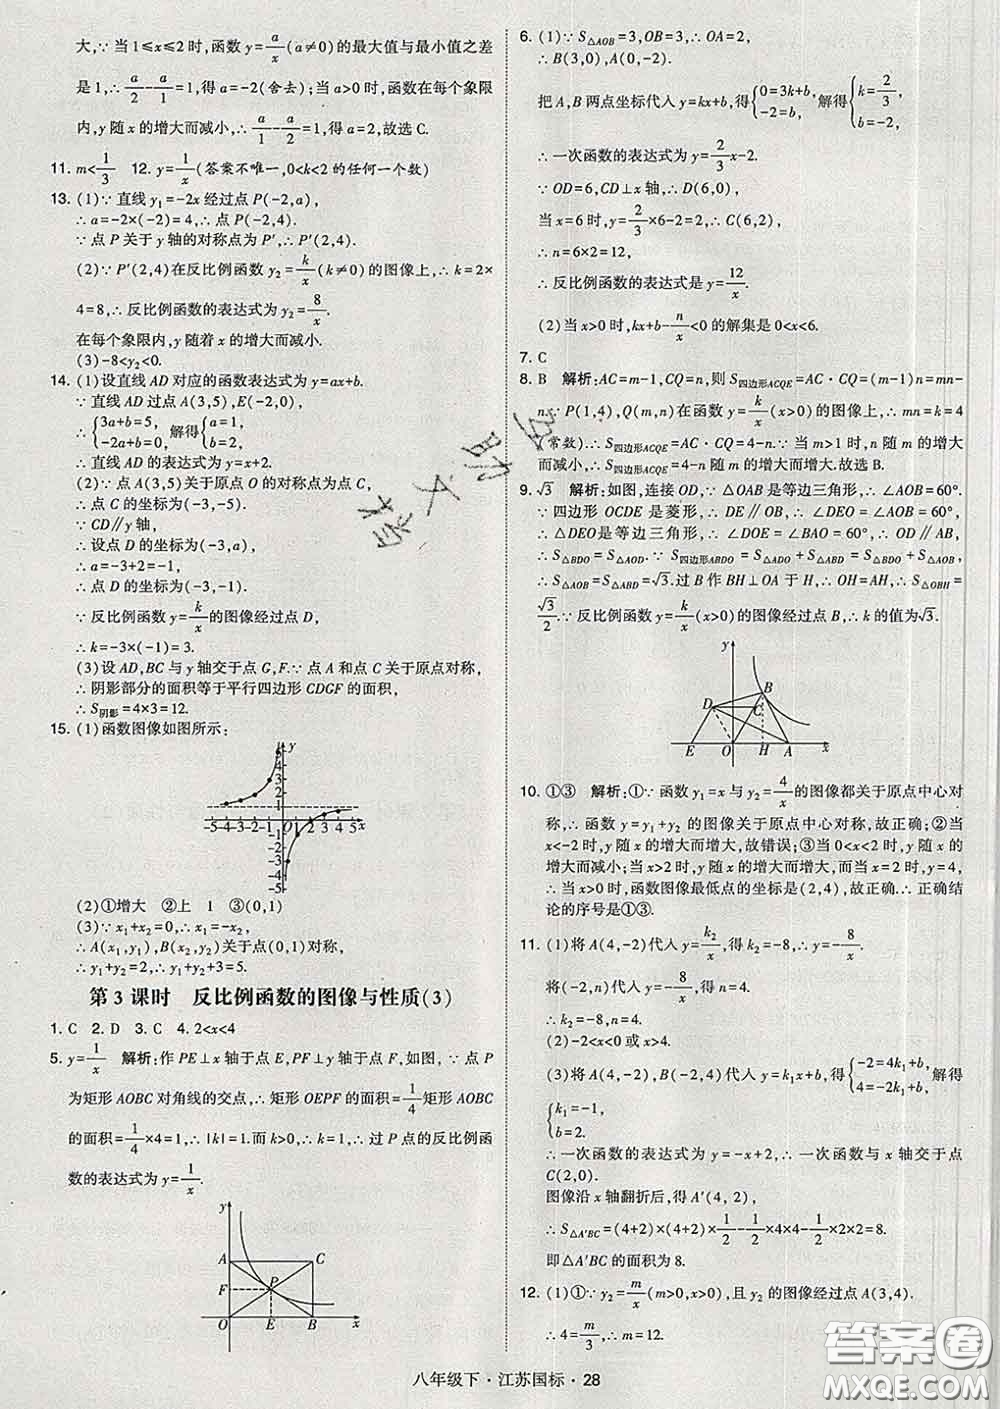 大,∵当1≤x≤2时,函数y=a/x(a≠0)的最大值与最小值之差
是1,∴a/2-a/1=1,得a=-2(舍去);当a>0时,函数在每个象限
内,y随x的增大而减小,∴a/1-a/2=1,得a=2,故选C.
11. m<1/3  12. y=1/x(答案不唯一,0<k<2的任何一个数)
13. (1)∵直线y₁=-2x经过点P(-2,a),
∴a=-2×(-2)=4,∴点P(-2,4).
∵点P关于y轴的对称点为P′,∴P′(2,4).
(2)∵P′(2,4)在反比例函数y₂=k/x(k≠0)的图像上,∴k=2×
4=8,∴反比例函数的表达式为y₂=8/x.
在每个象限内,y随着x的增大而减小.
(3)-8<y₂<0.
14. (1)设直线AD对应的函数表达式为y=ax+b.
∵直线AD过点A(3,5),E(-2,0),
∴{3a+b=5, -2a+b=0, 解得{a=1, b=2.
∴直线AD的表达式为y=x+2.
(2)∵点A(3,5)关于原点O的对称点为点C,
∴点C的坐标为(-3,-5).
∵CD∥y轴,
∴设点D的坐标为(-3,a),
∴a=-3+2=-1,
∴点D的坐标为(-3,-1).
∵反比例函数y=k/x的图像经过点D,
∴k=-3×(-1)=3.
(3)设AD,BC与y轴交于点G,F.∵点A和点C关于原点对称,
∴阴影部分的面积等于平行四边形CDGF的面积,
∴S阴影=4×3=12.
15. (1)函数图像如图所示:
y
5
4
3
2
1
-5-4-3-2-1 O 1 2 3 4 5 x
-1
-2
-3
-4
-5
(2)①增大 ②上 1 ③(0,1)
(3)∵x₁+x₂=0,∴x₁=-x₂,
∴A(x₁,y₁),B(x₂,y₂)关于点(0,1)对称,
∴y₁+y₂=2,∴y₁+y₂+3=5.
第3课时 反比例函数的图像与性质(3)
1. C 2. D 3. C 4. 2<x<4
5. y=1/x 解析:作PE⊥x轴于点E,PF⊥y轴于点F,如图,∵点P
为矩形AOBC对角线的交点,∴矩形OEPF的面积=1/4矩形AOBC
的面积=1/4×4=1,∴|k|=1.而k>0,∴k=1,∴过P点的反比例函
数的表达式为y=1/x.
y
A C
F P
O E B x
6. (1)∵S△AOB=3,OB=3,∴OA=2,
∴B(3,0),A(0,-2).
把A,B两点坐标代入y=kx+b,得{0=3k+b, -2=b, 解得{k=2/3, b=-2,
∴一次函数的表达式为y=2/3x-2.
∵OD=6,CD⊥x轴,∴D(6,0),
当x=6时,y=2/3×6-2=2,∴C(6,2),
∴n=6×2=12,
∴反比例函数的表达式是y=12/x.
(2)当x>0时,kx+b-n/x<0的解集是0<x<6.
7. C
8. B 解析:AC=m-1,CQ=n,则S四边形ACQE=AC·CQ=(m-1)n=mn-
n.∵P(1,4),Q(m,n)在函数y=k/x(x>0)的图像上,∴mn=k=4
(常数).∴S四边形ACQE=AC·CQ=4-n.∵当m>1时,n随m的增大
而减小,∴S四边形ACQE=4-n随m的增大而增大.故选B.
9. √3 解析:如图,连接OD,∵△OAB是等边三角形,∴∠AOB=60°.
∵四边形OCDE是菱形,∴DE∥OB,∴∠DEO=∠AOB=60°,
∴△DEO是等边三角形,∴∠DOE=∠BAO=60°,∴OD∥AB,
∴S△BDO=S△AOD.∵S四边形ABDO=S△ADO+S△ABD=S△BDO+S△AOB,
∴S△AOB=S△ABD=√3.过B作BH⊥OA于H,∴OH=AH,∴S△OBH=
√3/2.∵反比例函数y=k/x(x>0)的图像经过点B,∴k的值为√3.
y
D C B
E O H A x
10. ①③ 解析:①∵函数y₁=x与y₂=4/x的图像都关于原点中心对
称,∴函数y=y₁+y₂的图像关于原点中心对称,故正确;②当
x<-2时,y随x的增大而增大,故错误;③当0<x<2时,y随x的
增大而减小;当x>2时,y随x的增大而增大,而当x=2时,y=4,
∴当x>0时,函数图像最低点的坐标是(2,4),故正确.∴正确结
论的序号是①③.
11. (1)将A(4,-2)代入y=k₂/x,得k₂=-8,∴y=-8/x.
将(-2,n)代入y=-8/x,得n=4.
∴k₂=-8,n=4.
(2)-2<x<0或x>4.
(3)将A(4,-2),B(-2,4)代入y=k₁x+b,得{-2=4k₁+b, 4=-2k₁+b, 解得
{k₁=-1, b=2.
∴一次函数的表达式为y=-x+2,∴一次函数与x轴交于点
C(2,0).
图像沿x轴翻折后,得A′(4,2),
∴S△A′BC=(4+2)×(4+2)×1/2-1/2×4×4-1/2×2×2=8.
即△A′BC的面积为8.
12. (1)①∵y₂=m/x(m>0,x>0),且y₂的图像经过点A(3,4).
∴4=m/3,∴m=12.
八年级下·江苏国标·28
答案圈
MXQE.COM